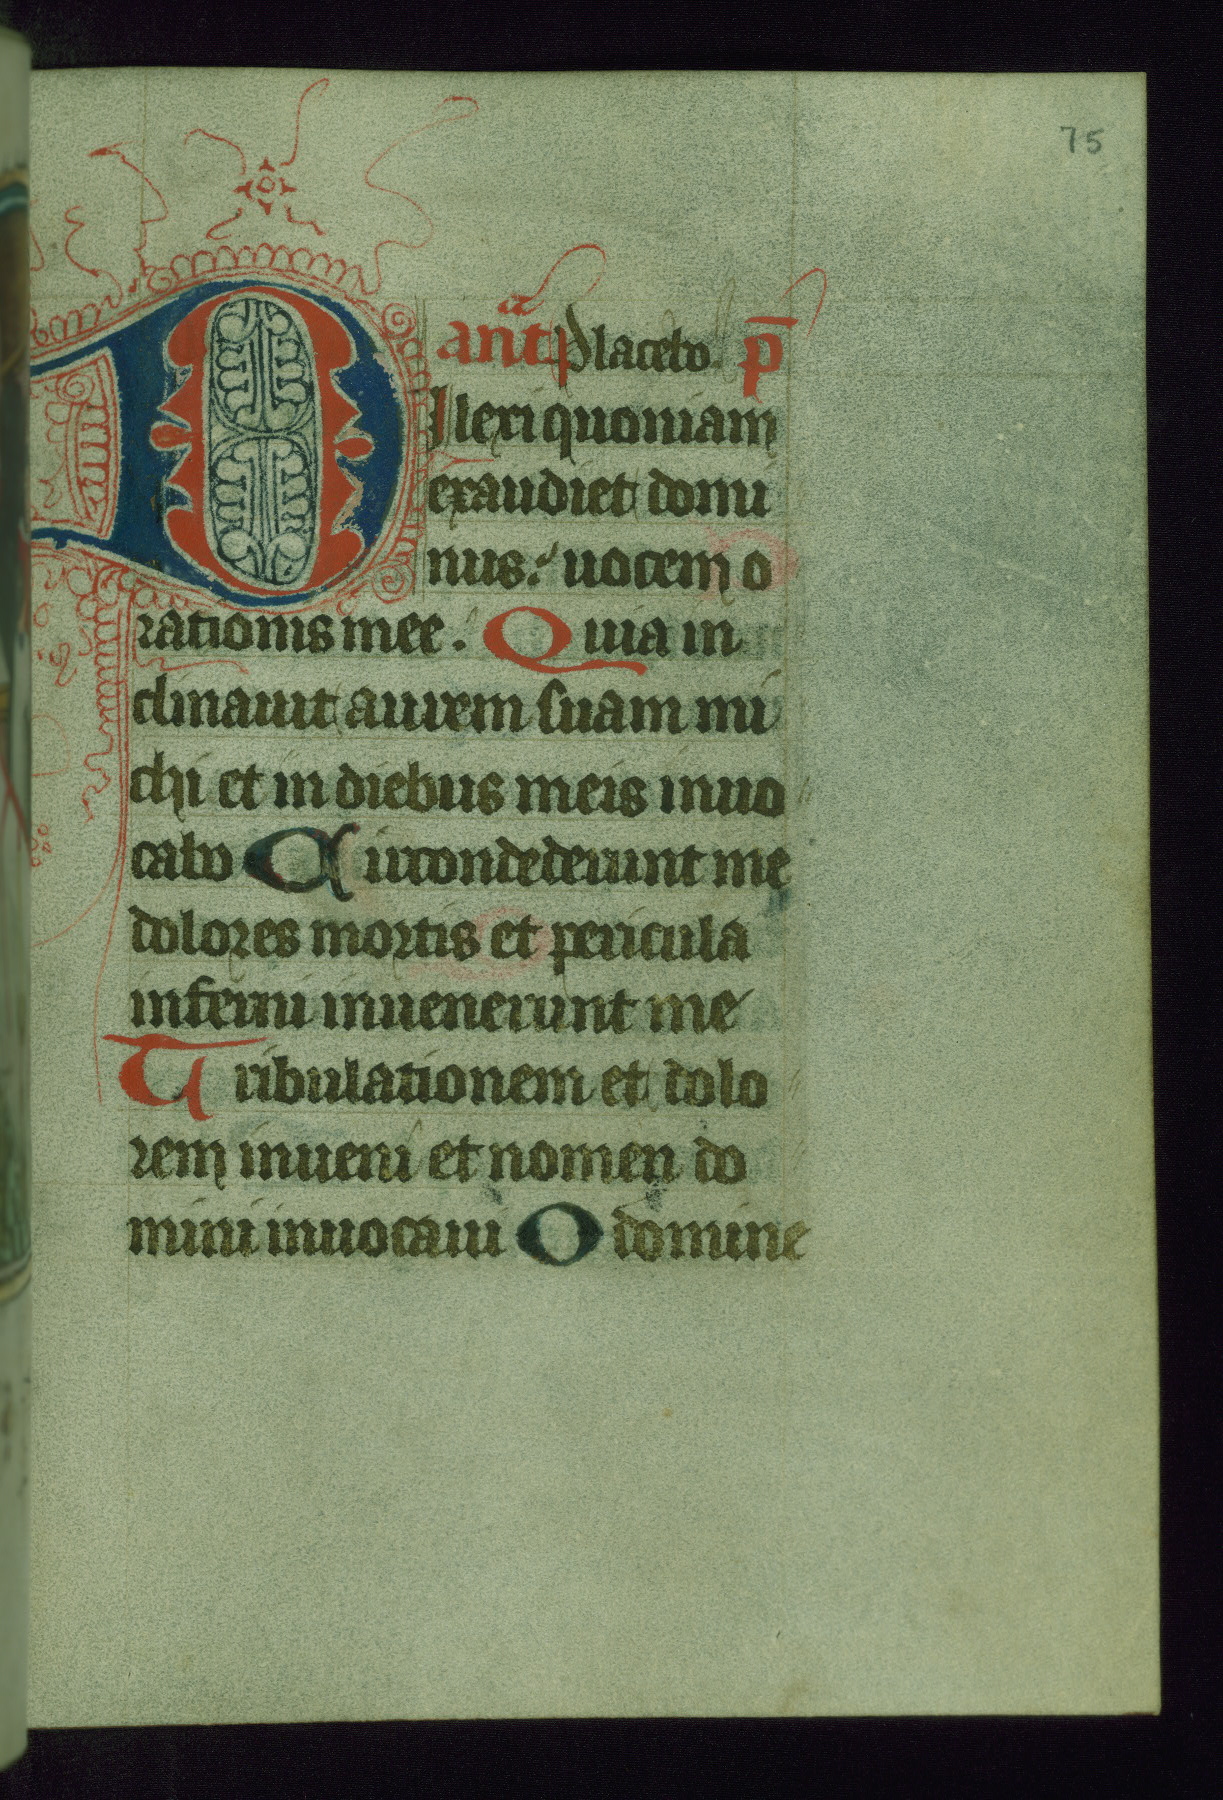 75
ant̃ Placebo. p̄
DIlexi quoniam
exaudiet domi
nus: uocem o
rationis mee. Quia in
clinauit aurem suam mi
chi et in diebus meis inuo
cabo Circondederunt me
dolores mortis et pericula
inferni inuenerunt me
Tribulationem et dolo
rem inueni et nomen do
mini inuocaui O domine